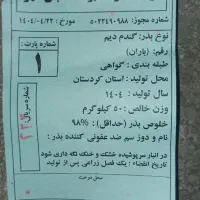 شماره مجوز: ۵۰۲۲۴۹۰۹۸۸ مورخ: ۱۴۰۴/۰۴/۲۲
نوع بذر: گندم دیم
رقم: (باران)
طبقه بندی: گواهی
محل تولید: استان کردستان
سال تولید: ۱۴۰۴
وزن خالص: ۵۰ کیلوگرم
خلوص بذر (حداقل): ۹۸%
نام و دوز سم ضد عفونی کننده بذر:
در انبار سرپوشیده خشک و خنک نگه داری شود
تاریخ انقضاء: یک فصل زراعی پس از تولید.
شماره پارت:
۱
شماره سریال: